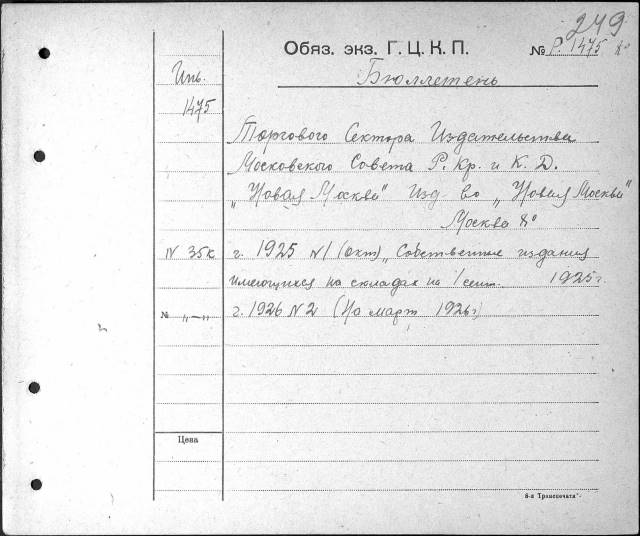 249
Обяз. экз. Г. Ц. К. П.
№ Р. 1475 8°
Бюллетень
Инв.
1475
Торгового Сектора Издательства
Московского Совета Р. Кр. и К. Д.
„Новая Москва" Изд. во „Новая Москва"
Москва 8°
IV 35к г. 1925 N1 (окт) „Собственные издания
имеющихся на складах на 1 сент. 1925г
№ „—„ г. 1926 N2 (по март 1926г)
Цена
8-я Транспечата"-